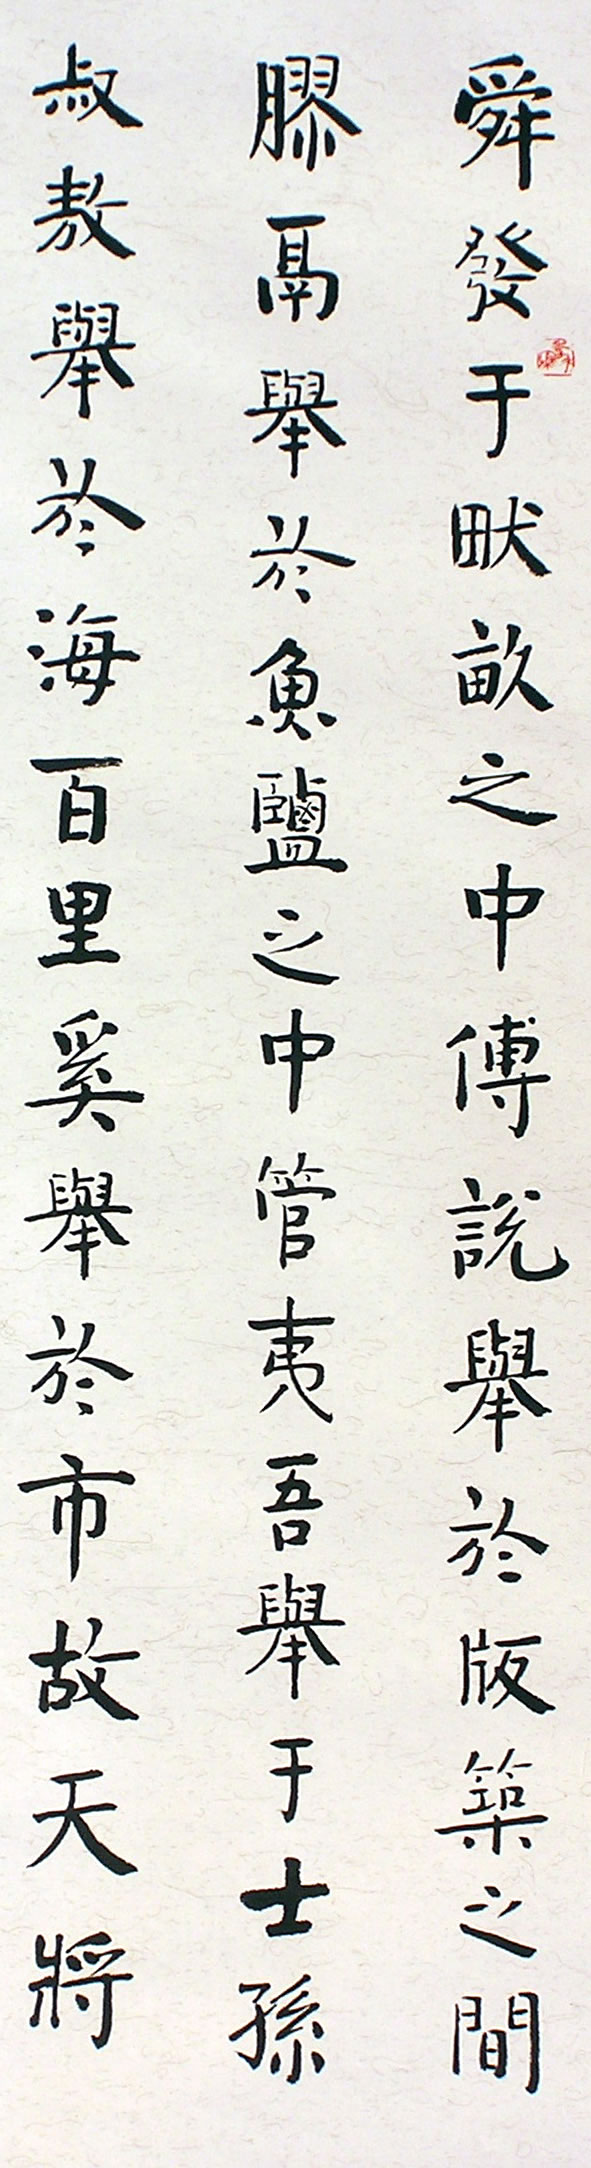 舜發于畎畝之中傅說舉於版築之間
膠鬲舉於魚鹽之中管夷吾舉于士孫
叔敖舉於海百里奚舉於市故天將